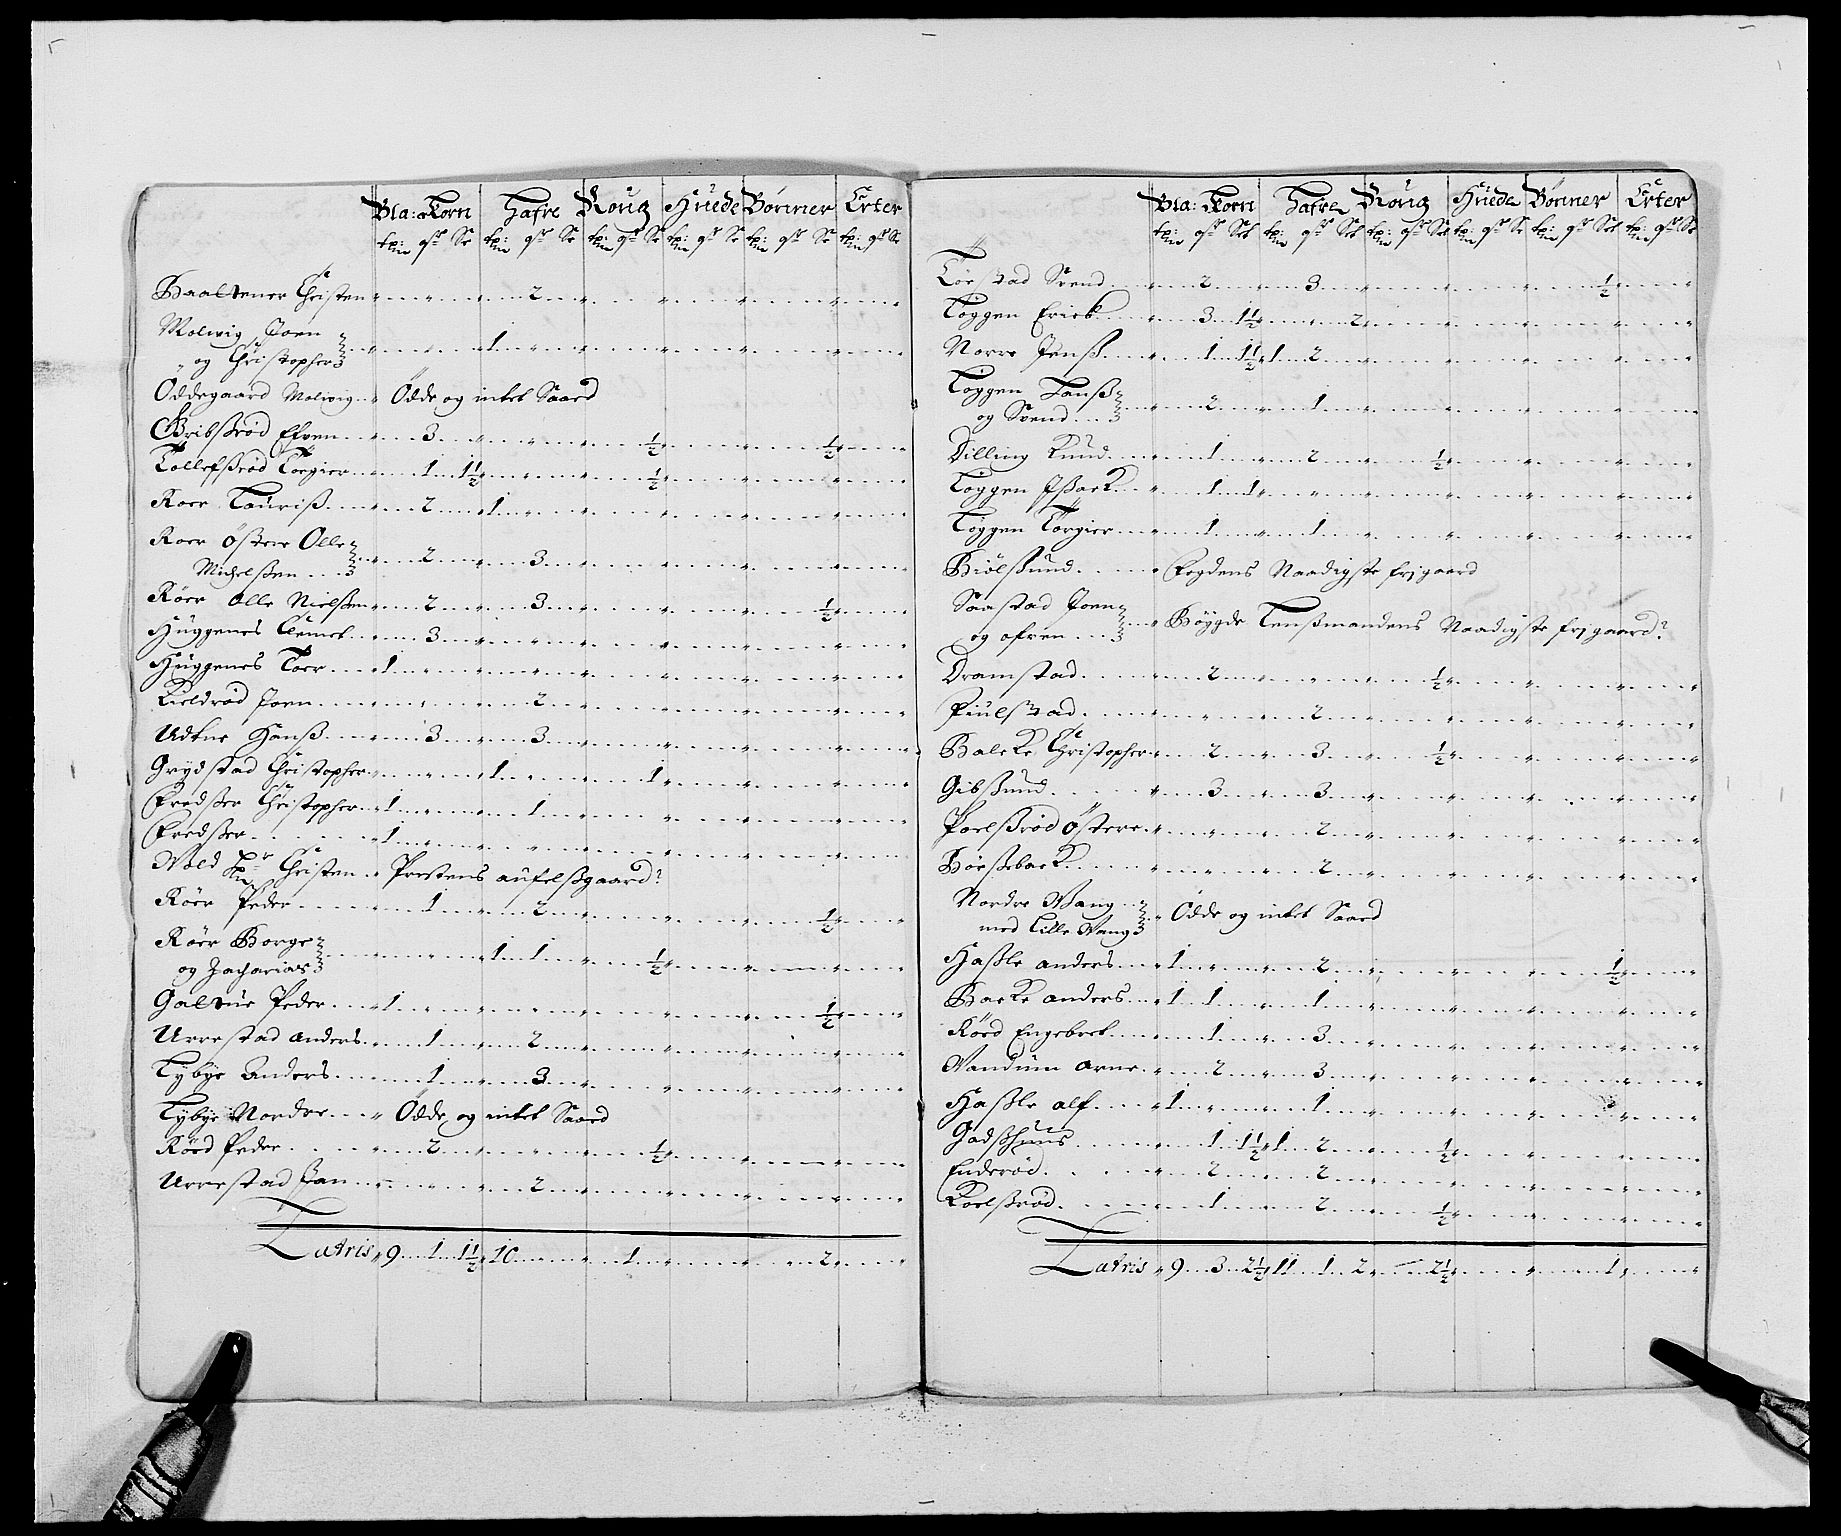 Bla: Korn Hafre Roug Huede Bønner Erter
tø: qr Se tø: qr Se tø: qr Se tø: qr Se tø: qr Se tø: qr Se
Haaltener Christen 2
Molwig Joen
og Christopher 1
Oddegaard Molwig Ödde og intet Saaed
Gribsrød Efven 3 ½ ½
Tollefsrød Torgier 1 1½ ½
Roer Lauriß 2 1
Roer Østere Olle
Michelßen 2 3
Röer Olle Nielßen 2 3 ½
Huggenes Clemet 3
Huggenes Toer 1
Kieldrød Joen 2
Udkne Hanß 3 3
Grydstad Christopher 1 1
Fredßer Christopher 1 1
Fredßer 1
Wold Christen Prestens aufelsgaard?
Röer Peder 1 2 ½
Röer Borge
og Zacharias 1 1 ½
Galtue Peder 1 ½
Urrestad anders 1 2
Tybye Anders 1 3
Tybye Nordre Ödde og intet Saaed
Röed Peder 2 ½
Urrestad Joan 2
Latris 9 1 1½ 10 1 2
Bla: Korn Hafre Roug Huede Bønner Erter
tø: qr Set tø: qr Set tø: qr Set tø: qr Se tø: qr Set tø: qr Se
Törstad Svend 2 3 ½
Töggen Erick 3 1½ 2
Norre Jenß 1 1½ 1 2
Töggen Hanß
og Svend 2 1
Dilling Knud 1 2 ½
Töggen Jßack 1 1
Töggen Torgier 1 1
Biölsund Fogdens Naadigste frj gaard
Saastad Joen
og ofren Böygde Lensmandens Naadigste frj gaard?
Dramstad 2 ½
Piulstad 2
Balcke Christopher 2 3 ½
Gibsund 3 3
Poelsrød Östere 2
Börseback 2
Nordre Wang
med Lille Wang Ödde og intet Saaed
Haßle anders 1 2 ½
Backe anders 1 1 1
Röed Engebret 1 3
Vandum Arne 2 3
Haßle alf 1 1
Godshuus 1 1½ 1 2 ½
Enderød 2 2
Koelsrød 1 2 ½
Latris 9 3 2½ 11 1 2 2½ 1